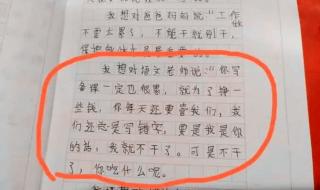 我想对爸爸妈妈说:“工作
不要太累了,不能干就别干,
我想对语文老师说:“你写
备课一定也很累,就为了挣一
些钱,你每天还要喜我们,我
们还总是写错字,要是我是你
的话,我就不干了。可是不干
了,你吃什么呢。